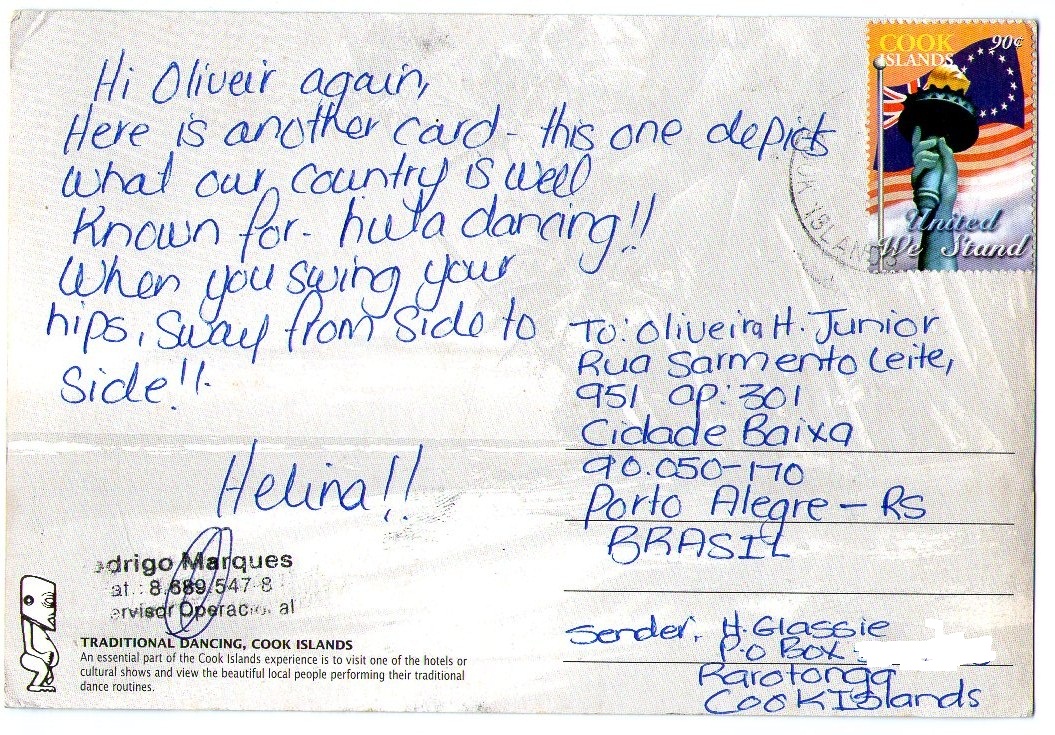 Hi Oliveir again,
Here is another card - this one depicts
what our country is well
known for - hula dancing!!
When you swing your
hips, sway from side to
side!!.
Helina!!
COOK
ISLANDS
90¢
United
We Stand
ISLANDS
To: Oliveira H. Junior
Rua Sarmento Leite,
951 ap: 301
Cidade Baixa
90.050-170
Porto Alegre - RS
BRASIL
drigo Marques
at.: 8.689.547-8
ervisor Operacional
TRADITIONAL DANCING, COOK ISLANDS
An essential part of the Cook Islands experience is to visit one of the hotels or
cultural shows and view the beautiful local people performing their traditional
dance routines.
Sender, H. Glassie
P.O Box:
Rarotonga
Cook Islands